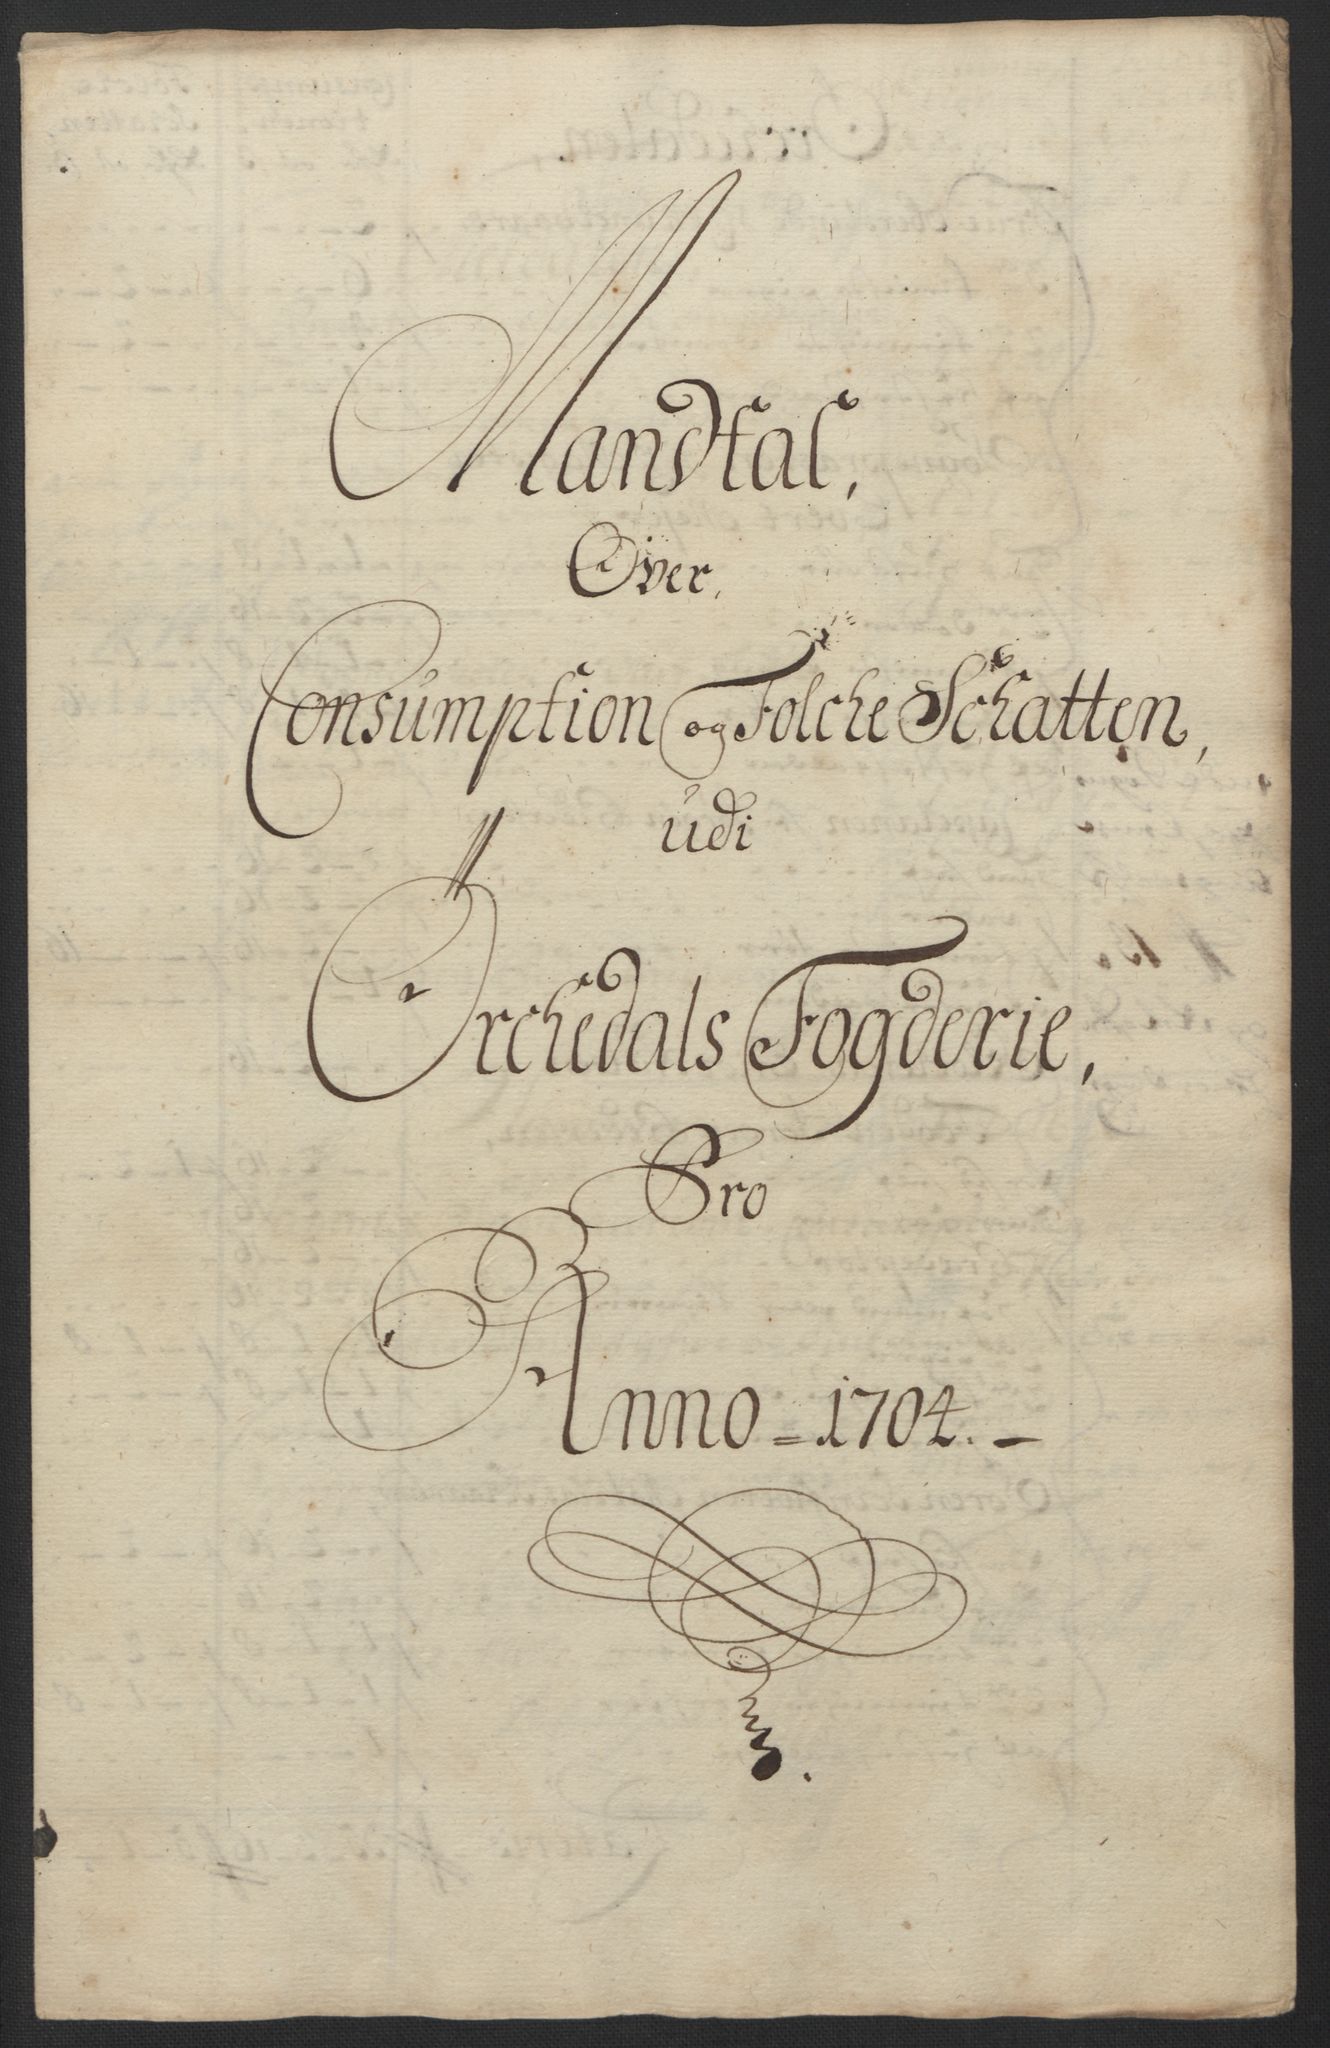 Mandtal,
Over,
Consumption og Folche Schatten,
udi
Orchedals Fogderie,
Pro
Anno = 1704. –